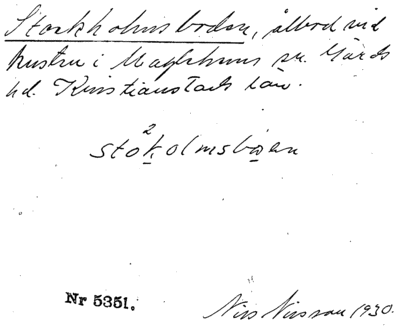 Stockholmsboden, ålbod vid
kusten i Maglehems sn. Gärds
hd. Kristianstads län.
2
stokolmsboen
Nr 5351.
Nils Nilsson 1930.